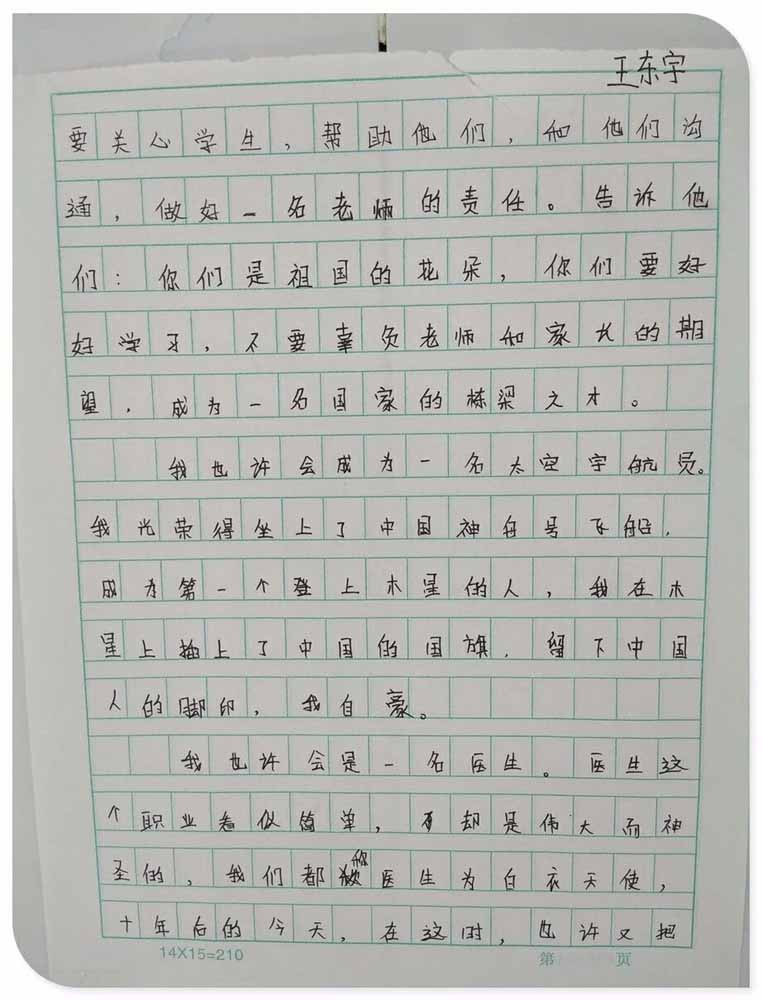 王东宇
要关心学生，帮助他们，和他们沟
通，做好一名老师的责任。告诉他
们：你们是祖国的花朵，你们要好
好学习，不要辜负老师和家长的期
望，成为一名国家的栋梁之才。
我也许会成为一名太空宇航员。
我光荣得坐上了中国神舟号飞船，
成为第一个登上木星的人，我在木
星上插上了中国的国旗，留下中国
人的脚印，我自豪。
我也许会是一名医生。医生这
个职业看似简单，却是伟大而神
圣的，我们都称医生为白衣天使，
十年后的今天，在这时，也许又把
14X15=210 第 页